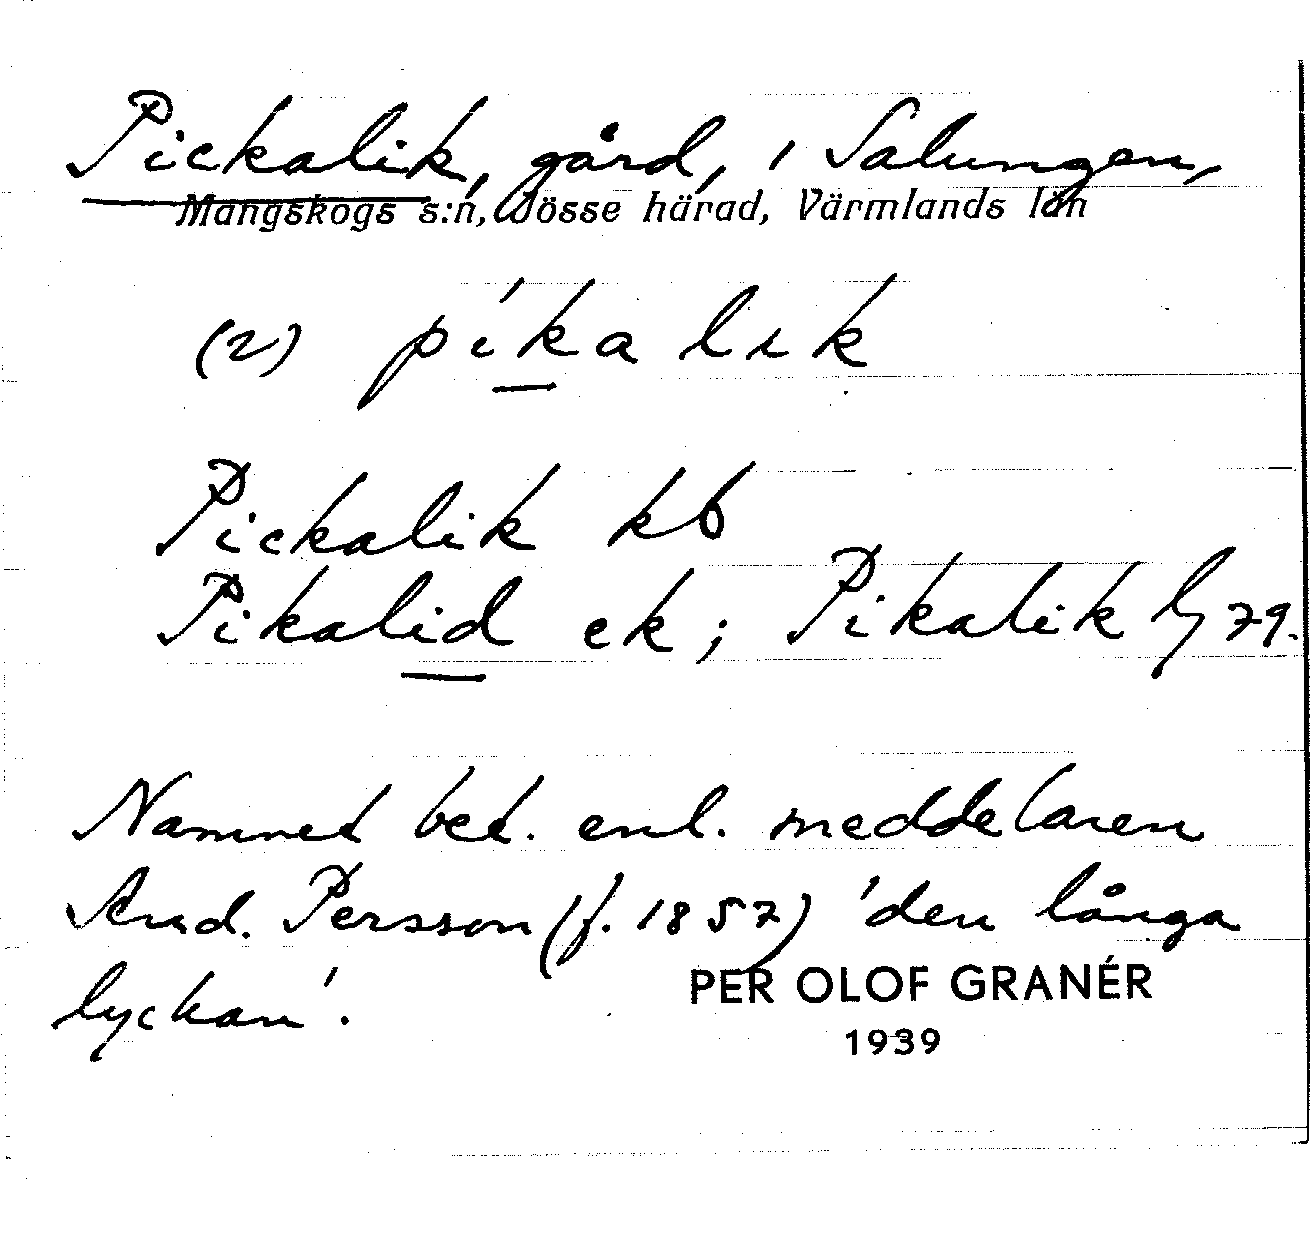 Pickalik, gård, i Salungen,
Mangskogs s:n, Jösse härad, Värmlands län
(2) píkalik
Pickalik kb
Pikalid ek; Pikalik 79.
Namnet bet. enl. meddelaren
And. Persson (f. 1857) 'den långa
lyckan'.
PER OLOF GRANÉR
1939